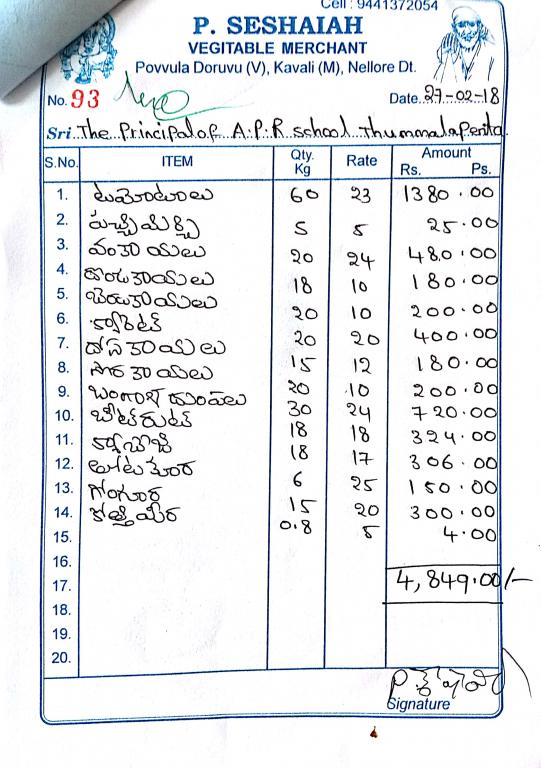 Cell : 9441372054
P. SESHAIAH
VEGITABLE MERCHANT
Povvula Doruvu (V), Kavali (M), Nellore Dt.
No. 93 Date. 27-02-18
Sri. The Principal of A.P.R school Thummalapenta
S.No. ITEM Qty. Kg Rate Amount Rs. Ps.
1. టుమోటాలు 60 23 1380.00
2. పచ్చిమిర్చి 5 5 25.00
3. వంకాయలు 20 24 480.00
4. దొండకాయలు 18 10 180.00
5. బెండకాయలు 20 10 200.00
6. క్యారెట్ 20 20 400.00
7. దోసకాయలు 15 12 180.00
8. సొరకాయలు 20 10 200.00
9. బంగాళ దుంపలు 30 24 720.00
10. బీట్ రుట్ 18 18 324.00
11. క్యాబేజి 18 17 306.00
12. తోటకూర 6 25 150.00
13. గోంగూర 15 20 300.00
14. కొత్తిమీర 0.8 5 4.00
15.
16.
17. 4,849.00/-
18.
19.
20.
Signature